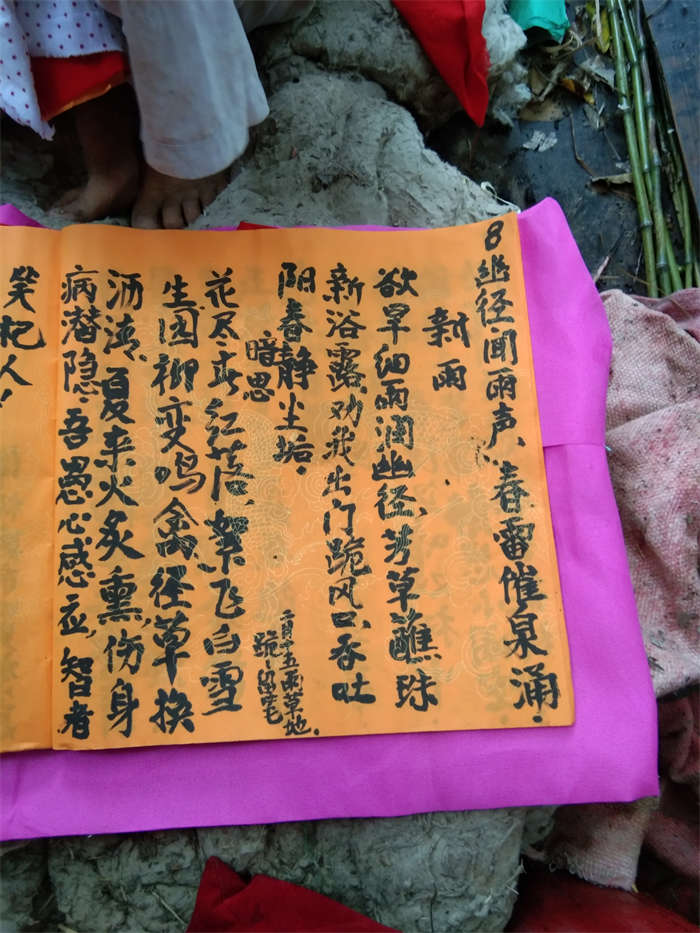 8幽径闻雨声、春雷催泉涌.
新雨
欲早细雨润幽径,芳草蘸珠
新浴露,劝我出门跪风口吞吐
阳春静尘垢.
暗思
花尽春红落,絮飞白雪
生园柳变鸣禽径草换
洒清,夏来火炙熏,伤身
病潜隐,吾愚心感应,智者
笑杞人!